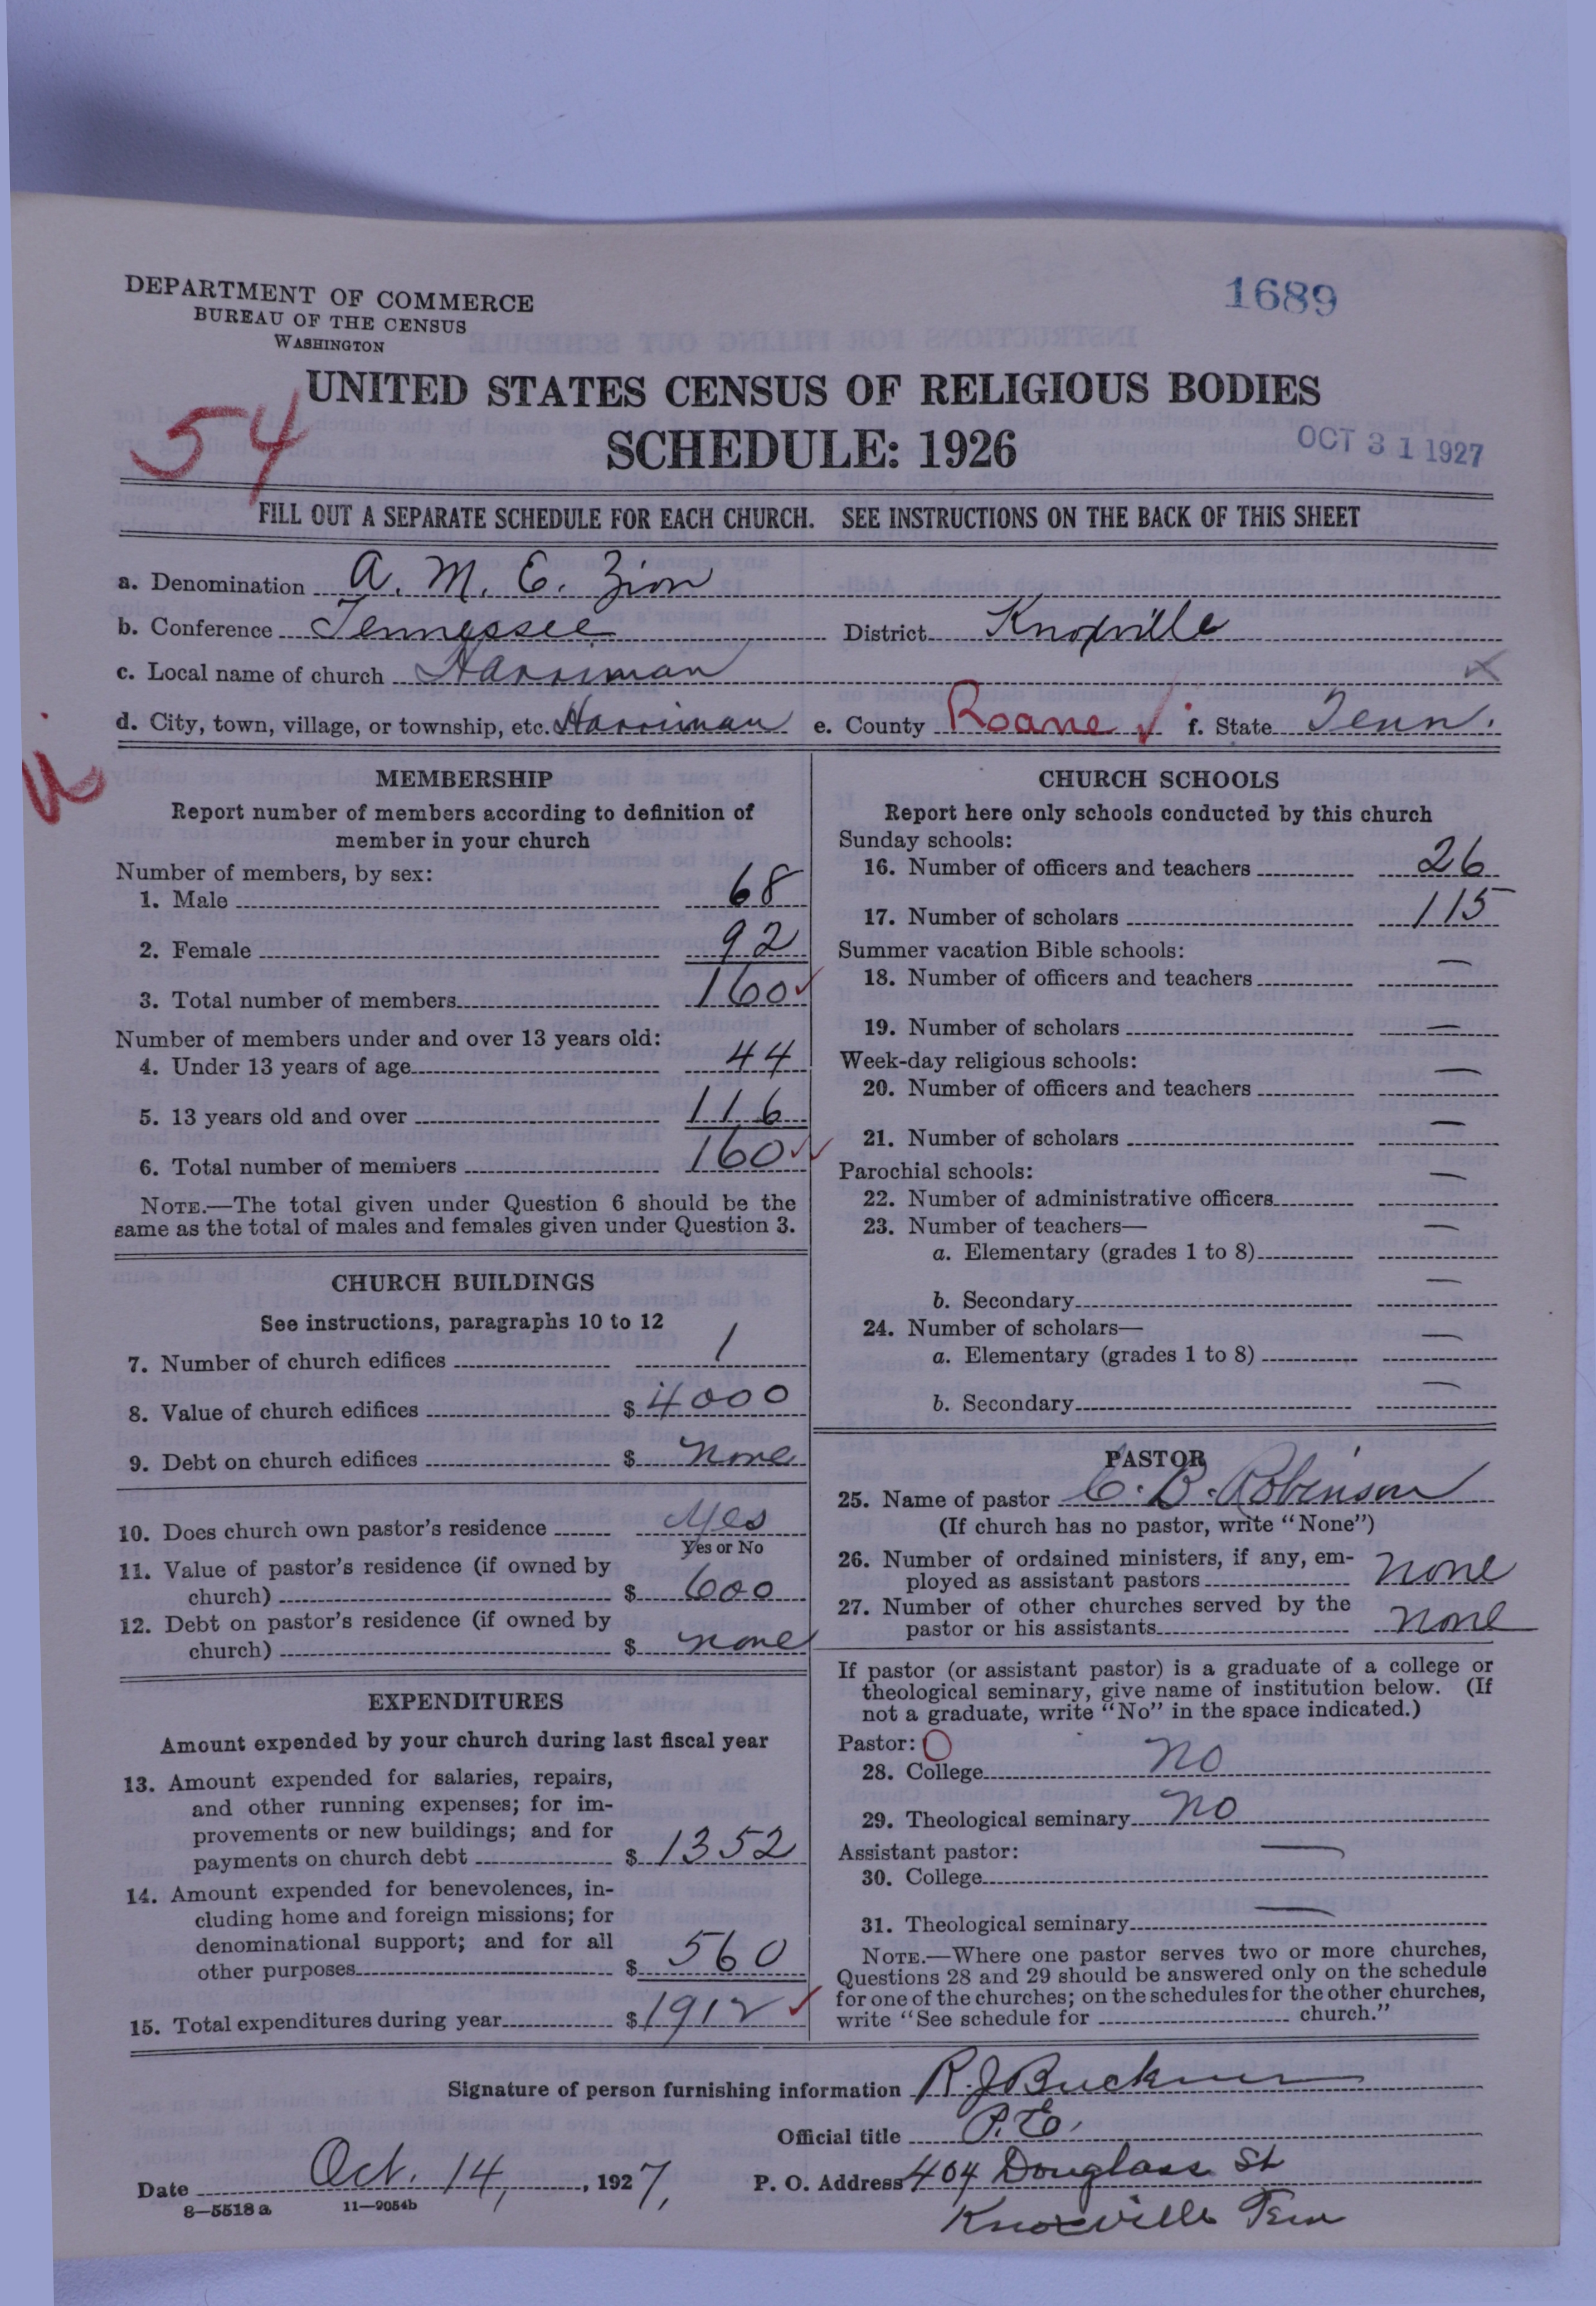 DEPARTMENT OF COMMERCE
BUREAU OF THE CENSUS
WASHINGTON
1689
UNITED STATES CENSUS OF RELIGIOUS BODIES
54
SCHEDULE: 1926
OCT 31 1927
FILL OUT A SEPARATE SCHEDULE FOR EACH CHURCH. SEE INSTRUCTIONS ON THE BACK OF THIS SHEET
a. Denomination A. M. E. Zion
b. Conference Tennessee District Knoxville
c. Local name of church Harriman
d. City, town, village, or township, etc. Harriman e. County Roane ✓ f. State Tenn.
MEMBERSHIP
Report number of members according to definition of
member in your church
Number of members, by sex:
1. Male 68
2. Female 92
3. Total number of members 160 ✓
Number of members under and over 13 years old:
4. Under 13 years of age 44
5. 13 years old and over 116
6. Total number of members 160 ✓✓
NOTE.—The total given under Question 6 should be the
same as the total of males and females given under Question 3.
CHURCH BUILDINGS
See instructions, paragraphs 10 to 12
7. Number of church edifices 1
8. Value of church edifices $ 4000
9. Debt on church edifices $ none
10. Does church own pastor's residence Yes
Yes or No
11. Value of pastor's residence (if owned by
church) $ 600
12. Debt on pastor's residence (if owned by
church) $ none
EXPENDITURES
Amount expended by your church during last fiscal year
13. Amount expended for salaries, repairs,
and other running expenses; for im-
provements or new buildings; and for
payments on church debt $ 1352
14. Amount expended for benevolences, in-
cluding home and foreign missions; for
denominational support; and for all
other purposes $ 560
15. Total expenditures during year $ 1912 ✓
CHURCH SCHOOLS
Report here only schools conducted by this church
Sunday schools:
16. Number of officers and teachers 26
17. Number of scholars 115
Summer vacation Bible schools:
18. Number of officers and teachers —
19. Number of scholars —
Week-day religious schools:
20. Number of officers and teachers —
21. Number of scholars —
Parochial schools:
22. Number of administrative officers —
23. Number of teachers—
a. Elementary (grades 1 to 8) —
b. Secondary —
24. Number of scholars—
a. Elementary (grades 1 to 8) —
b. Secondary —
PASTOR
25. Name of pastor C. B. Robinson
(If church has no pastor, write "None")
26. Number of ordained ministers, if any, em-
ployed as assistant pastors none
27. Number of other churches served by the
pastor or his assistants none
If pastor (or assistant pastor) is a graduate of a college or
theological seminary, give name of institution below. (If
not a graduate, write "No" in the space indicated.)
Pastor: O
28. College no
29. Theological seminary no
Assistant pastor:
30. College —
31. Theological seminary —
NOTE.—Where one pastor serves two or more churches,
Questions 28 and 29 should be answered only on the schedule
for one of the churches; on the schedules for the other churches,
write "See schedule for church."
Signature of person furnishing information R. J. Buckner
Official title P. E.
Date Oct. 14, 1927, P. O. Address 404 Douglass St
8—5518 a 11—9054b
Knoxville Tenn